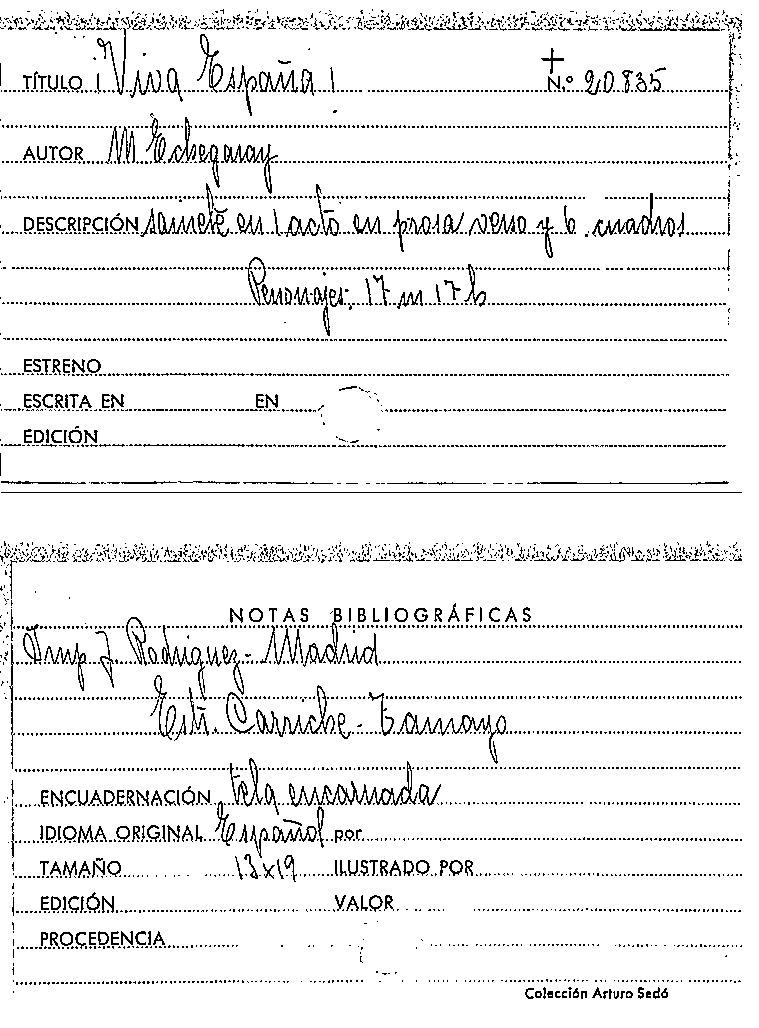 TÍTULO ¡Viva España! N.º 20835
AUTOR M Echegaray
DESCRIPCIÓN sainete en 1 acto en prosa verso y 6 cuadros
Personajes; 17 m 17 h
ESTRENO
ESCRITA EN EN
EDICIÓN
NOTAS BIBLIOGRÁFICAS
Imp J. Rodriguez - Madrid
Estr. Carriche - Tamayo
ENCUADERNACIÓN tela encarnada
IDIOMA ORIGINAL Español por
TAMAÑO 13x19 ILUSTRADO POR
EDICIÓN VALOR
PROCEDENCIA
Colección Arturo Sedó